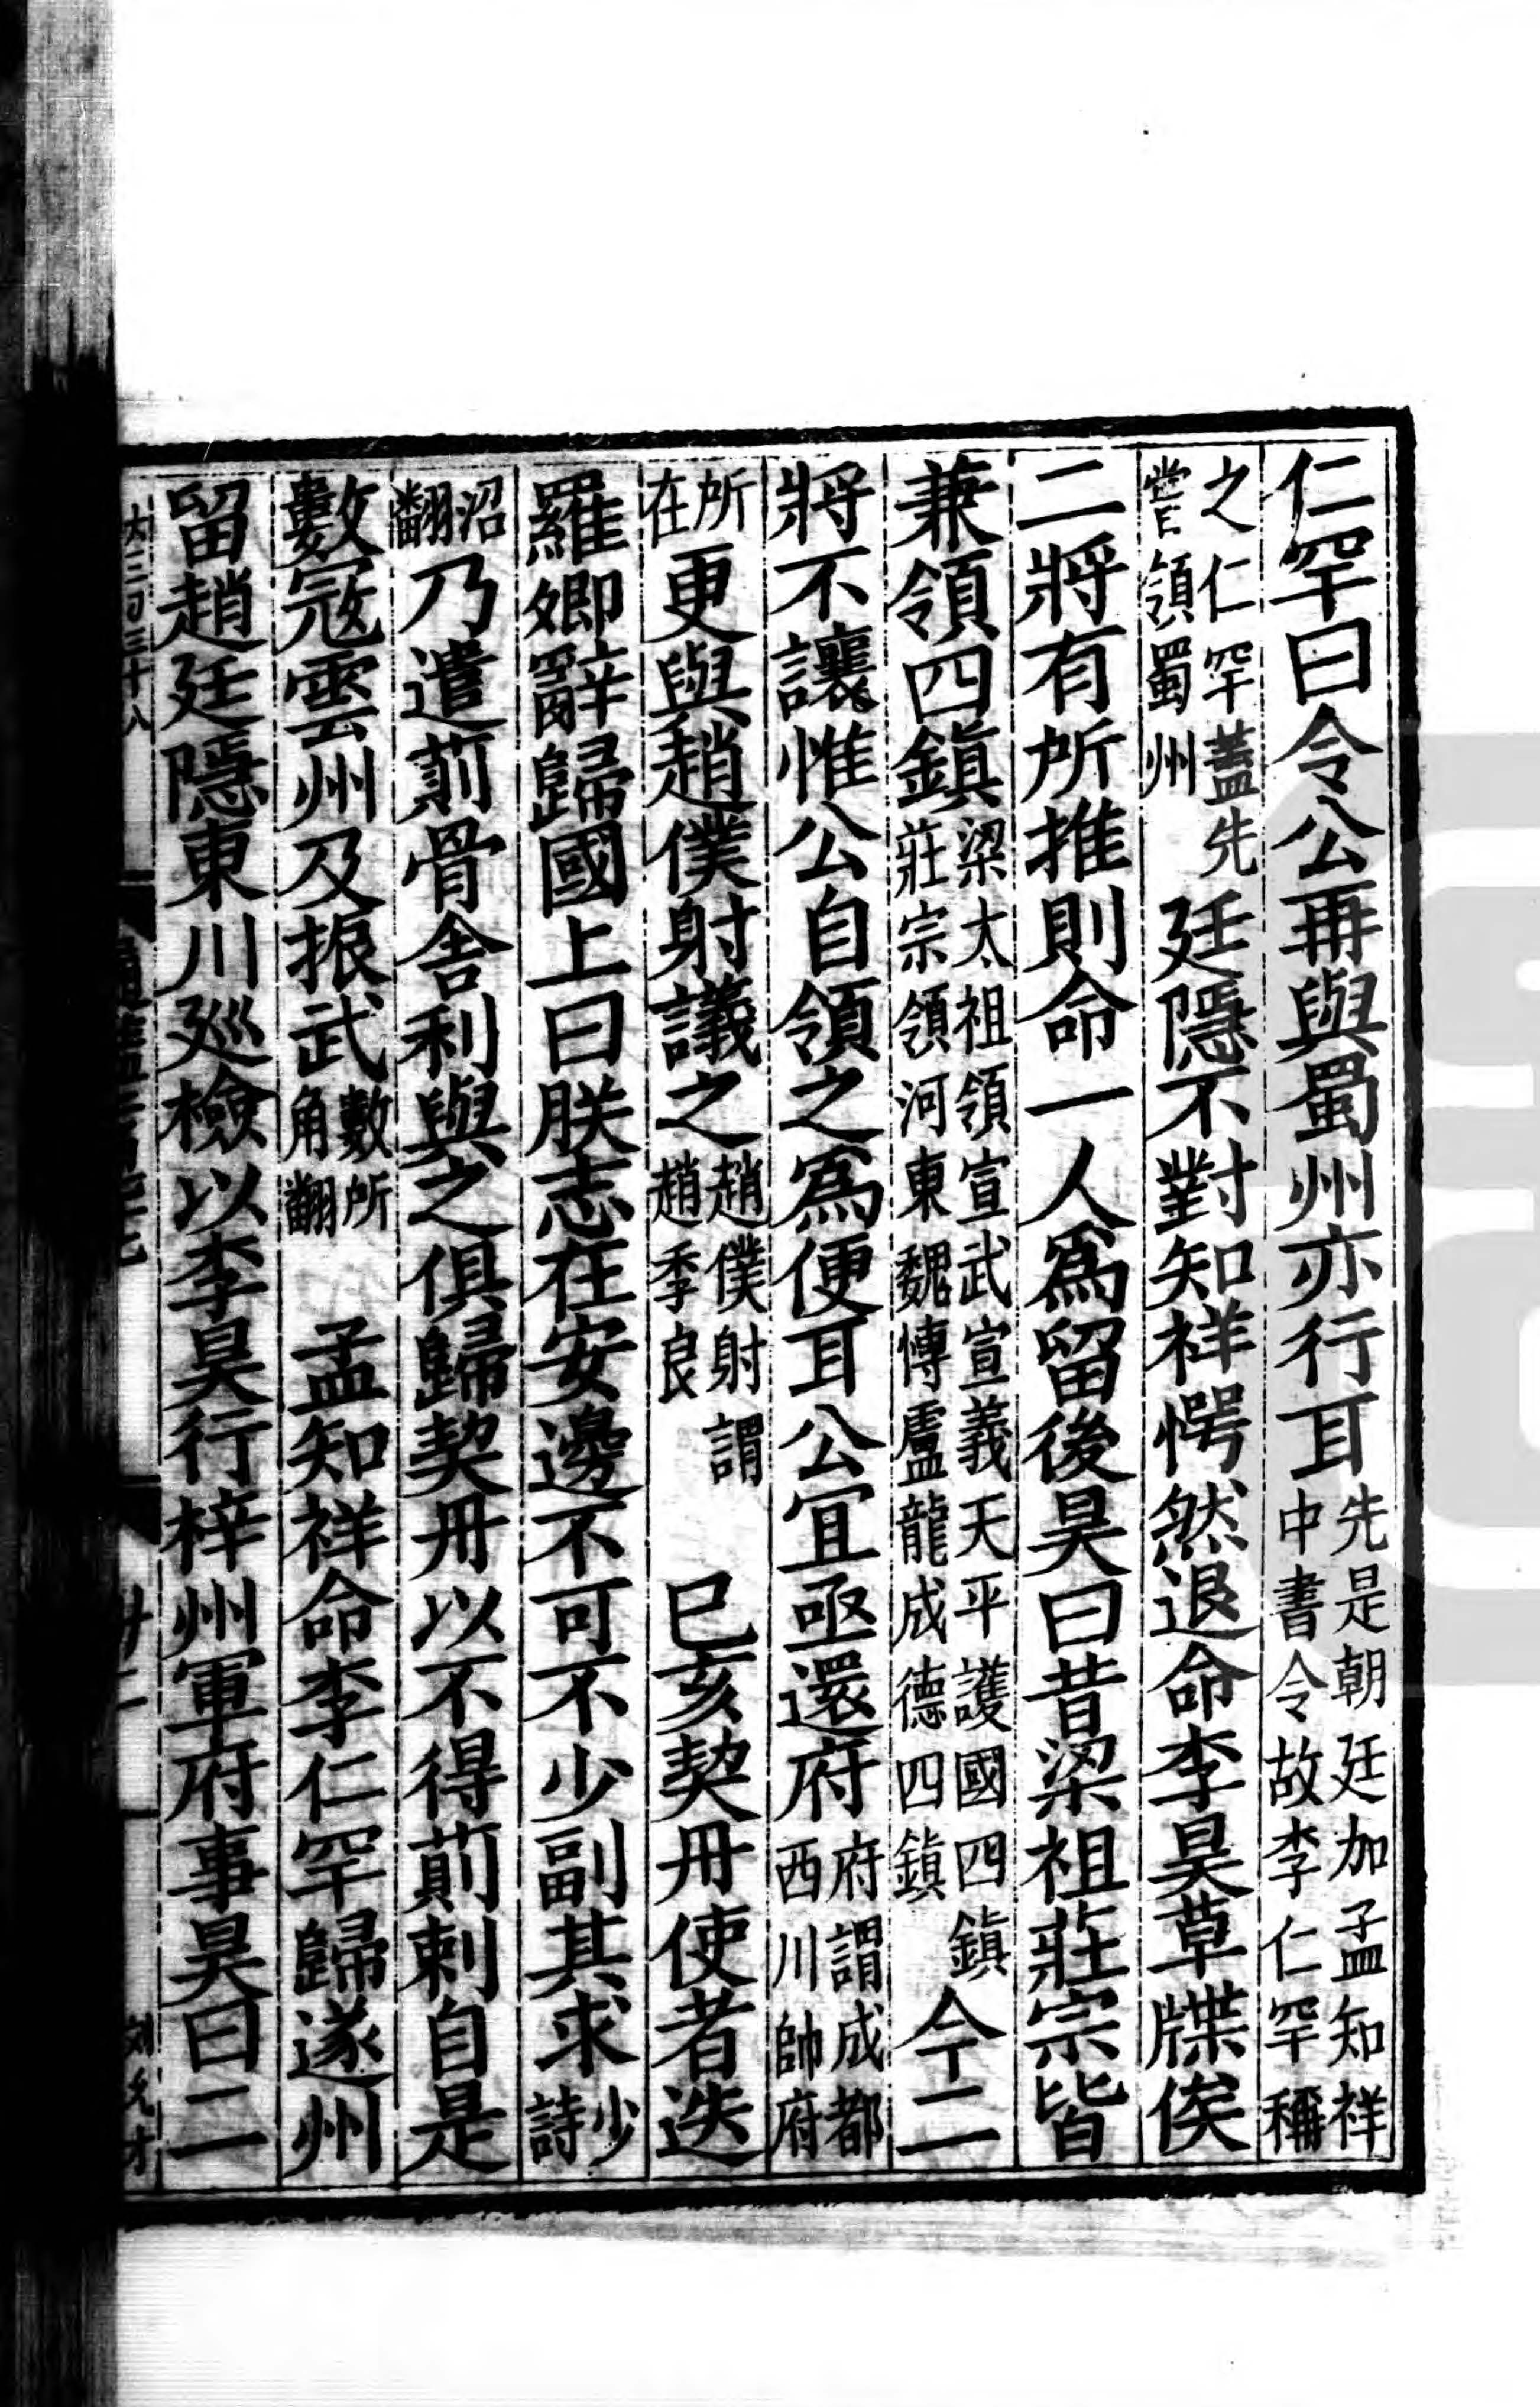 仁罕曰令公再與蜀州亦行耳先是朝廷加孟知祥中書令故李仁罕稱
之仁罕蓋先嘗領蜀州廷隱不對知祥愕然退命李昊草牒俟
二將有所推則命一人爲留後昊曰昔梁祖莊宗皆
兼領四鎮梁太祖領宣武宣義天平護國四鎮莊宗領河東魏愽盧龍成德四鎮今二
將不讓惟公自領之爲便耳公宜亟還府府謂成都西川帥府
所在更與趙僕射議之趙僕射謂趙季良已亥契丹使者迭
羅卿辭歸國上曰朕志在安邊不可不少副其求少詩
沼翻乃遣萴骨舍利與之俱歸契丹以不得萴剌自是
數寇雲州及振武數所角翻孟知祥命李仁罕歸遂州
留趙廷隱東川巡檢以李昊行梓州軍府事昊曰二